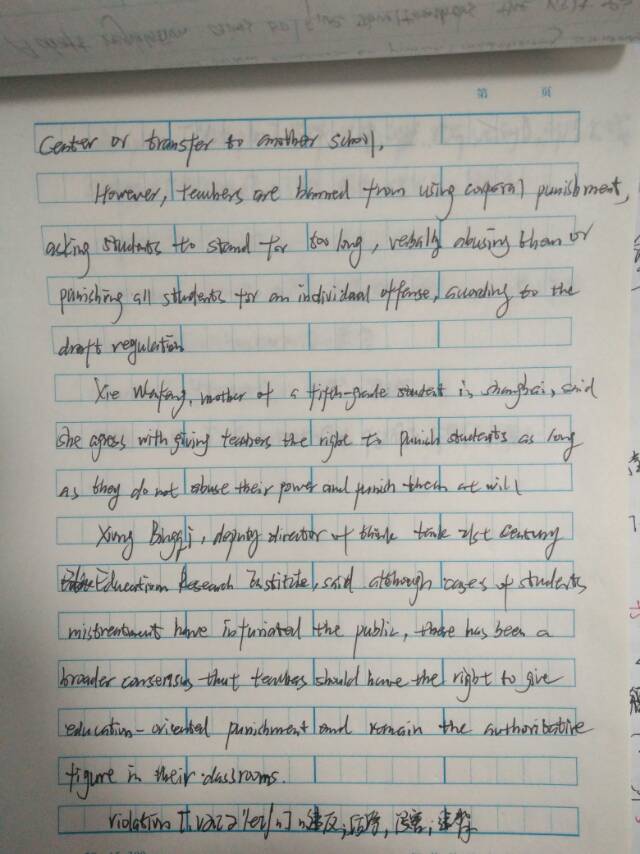 第 页
Center or transfer to another school.
However, teachers are banned from using corporal punishment,
asking students to stand for too long, verbally abusing them or
punishing all students for an individual offense, according to the
draft regulation
Xie Weifang, mother of a fifth-grade student in shanghai, said
she agress with giving teachers the right to punish students as long
as they do not abuse their power and punish them at will
Xiong Bingqi, deputy director of think tank 21st Century
Education Research Institite, said although cases of students
mistreatment have infuriated the public, there has been a
broader consensus that teachers should have the right to give
education-oriented punishment and remain the authoritative
figure in their classrooms.
violation n 违反;